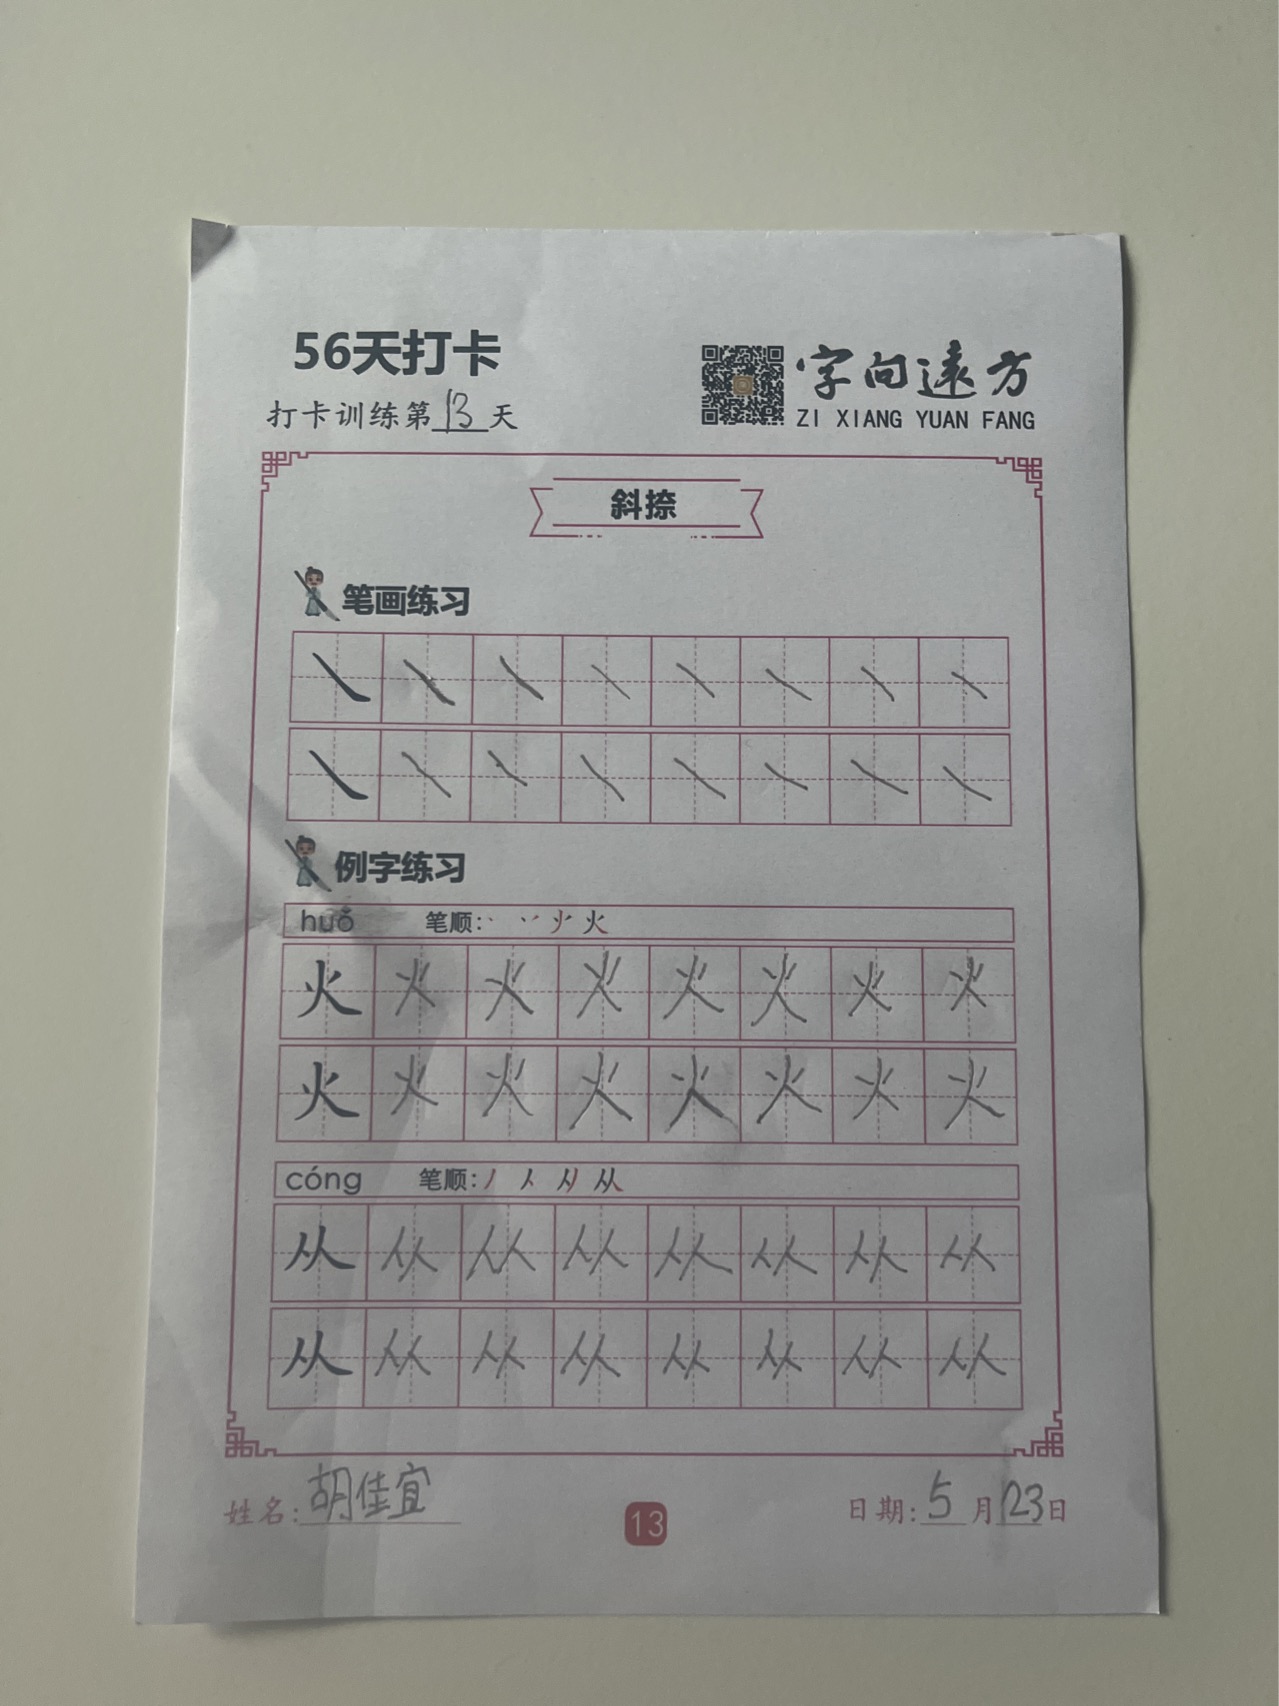 56天打卡
打卡训练第13天
字向远方
ZI XIANG YUAN FANG
斜捺
笔画练习
㇏ ㇏ ㇏ ㇏ ㇏ ㇏ ㇏ ㇏
㇏ ㇏ ㇏ ㇏ ㇏ ㇏ ㇏ ㇏
例字练习
huǒ 笔顺: 火
火 火 火 火 火 火 火 火
火 火 火 火 火 火 火 火
cóng 笔顺: 丿 人 从
从 从 从 从 从 从 从 从
从 从 从 从 从 从 从 从
姓名:胡佳宜
13
日期:5月23日